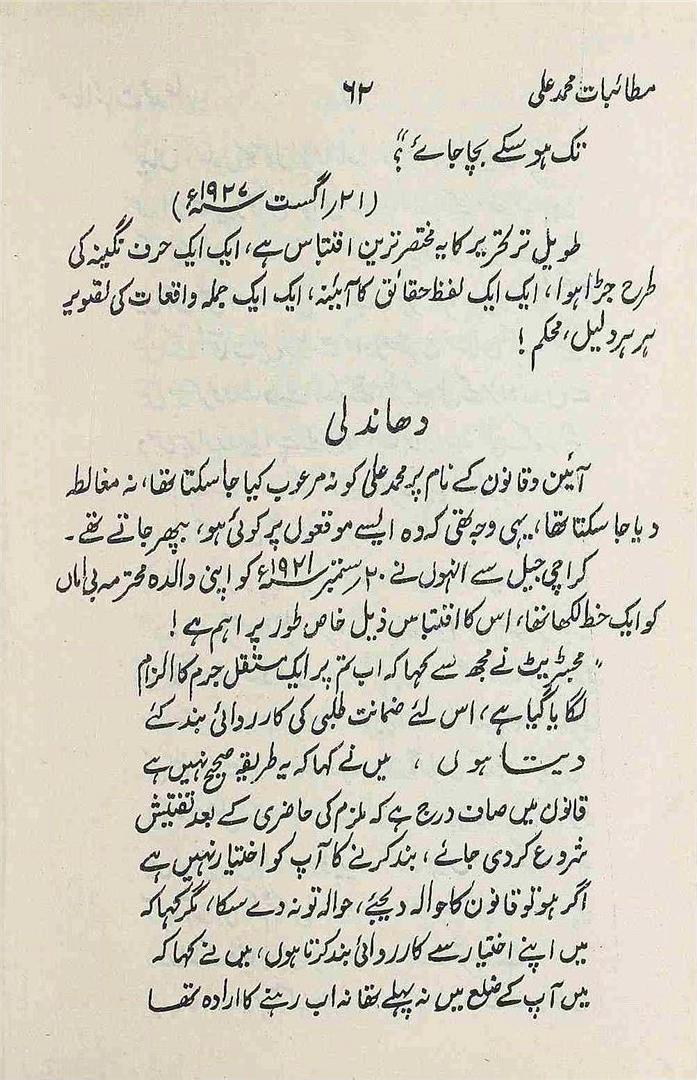 مطائبات محمد علی ۶۲
تک ہو سکے بچا جائے؟"
(۲۱ر اگست سنہ ۱۹۲۷ء)
طویل تر تحریر کا یہ مختصر ترین اقتباس ہے، ایک ایک حرف نگینہ کی
طرح جڑا ہوا، ایک ایک لفظ حقائق کا آئینہ، ایک ایک جملہ واقعات کی تصویر
ہر ہر دلیل، محکم!
دھاندلی
آئین و قانون کے نام پر محمد علی کو نہ مرعوب کیا جا سکتا تھا، نہ مغالطہ
دیا جا سکتا تھا، یہی وجہ تھی کہ وہ ایسے موقعوں پر کوئی ہو، بپھر جاتے تھے۔
کراچی جیل سے انہوں نے ۲۰ر ستمبر سنہ ۱۹۲۱ء کو اپنی والدہ محترمہ بی اماں
کو ایک خط لکھا تھا، اس کا اقتباس ذیل خاص طور پر اہم ہے!
"مجسٹریٹ نے مجھ سے کہا کہ اب تم پر ایک مستقل جرم کا الزام
لگایا گیا ہے، اس لئے ضمانت طلبی کی کارروائی بند کئے
دیتا ہوں، میں نے کہا کہ یہ طریقہ صحیح نہیں ہے
قانون میں صاف درج ہے کہ ملزم کی حاضری کے بعد تفتیش
شروع کردی جائے، بند کرنے کا آپ کو اختیار نہیں ہے
اگر ہو تو قانون کا حوالہ دیجئے، حوالہ تو نہ دے سکا، مگر کہا کہ
میں اپنے اختیار سے کارروائی بند کرتا ہوں، میں نے کہا کہ
میں آپ کے ضلع میں نہ پہلے تھا نہ اب رہنے کا ارادہ تھا